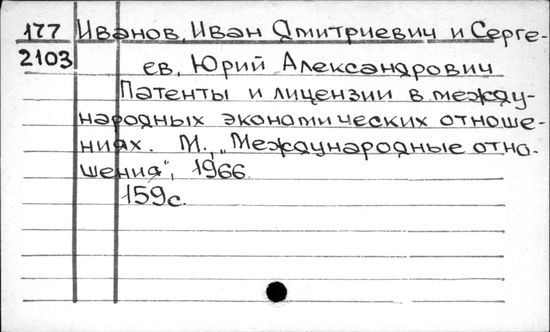 177 Иванов, Иван Дмитриевич и Серге-
2103 ев, Юрий Александрович
Патенты и лицензии в между-
народных экономических отноше-
ниях. М., „Международные отно-
шения", 1966.
159с.